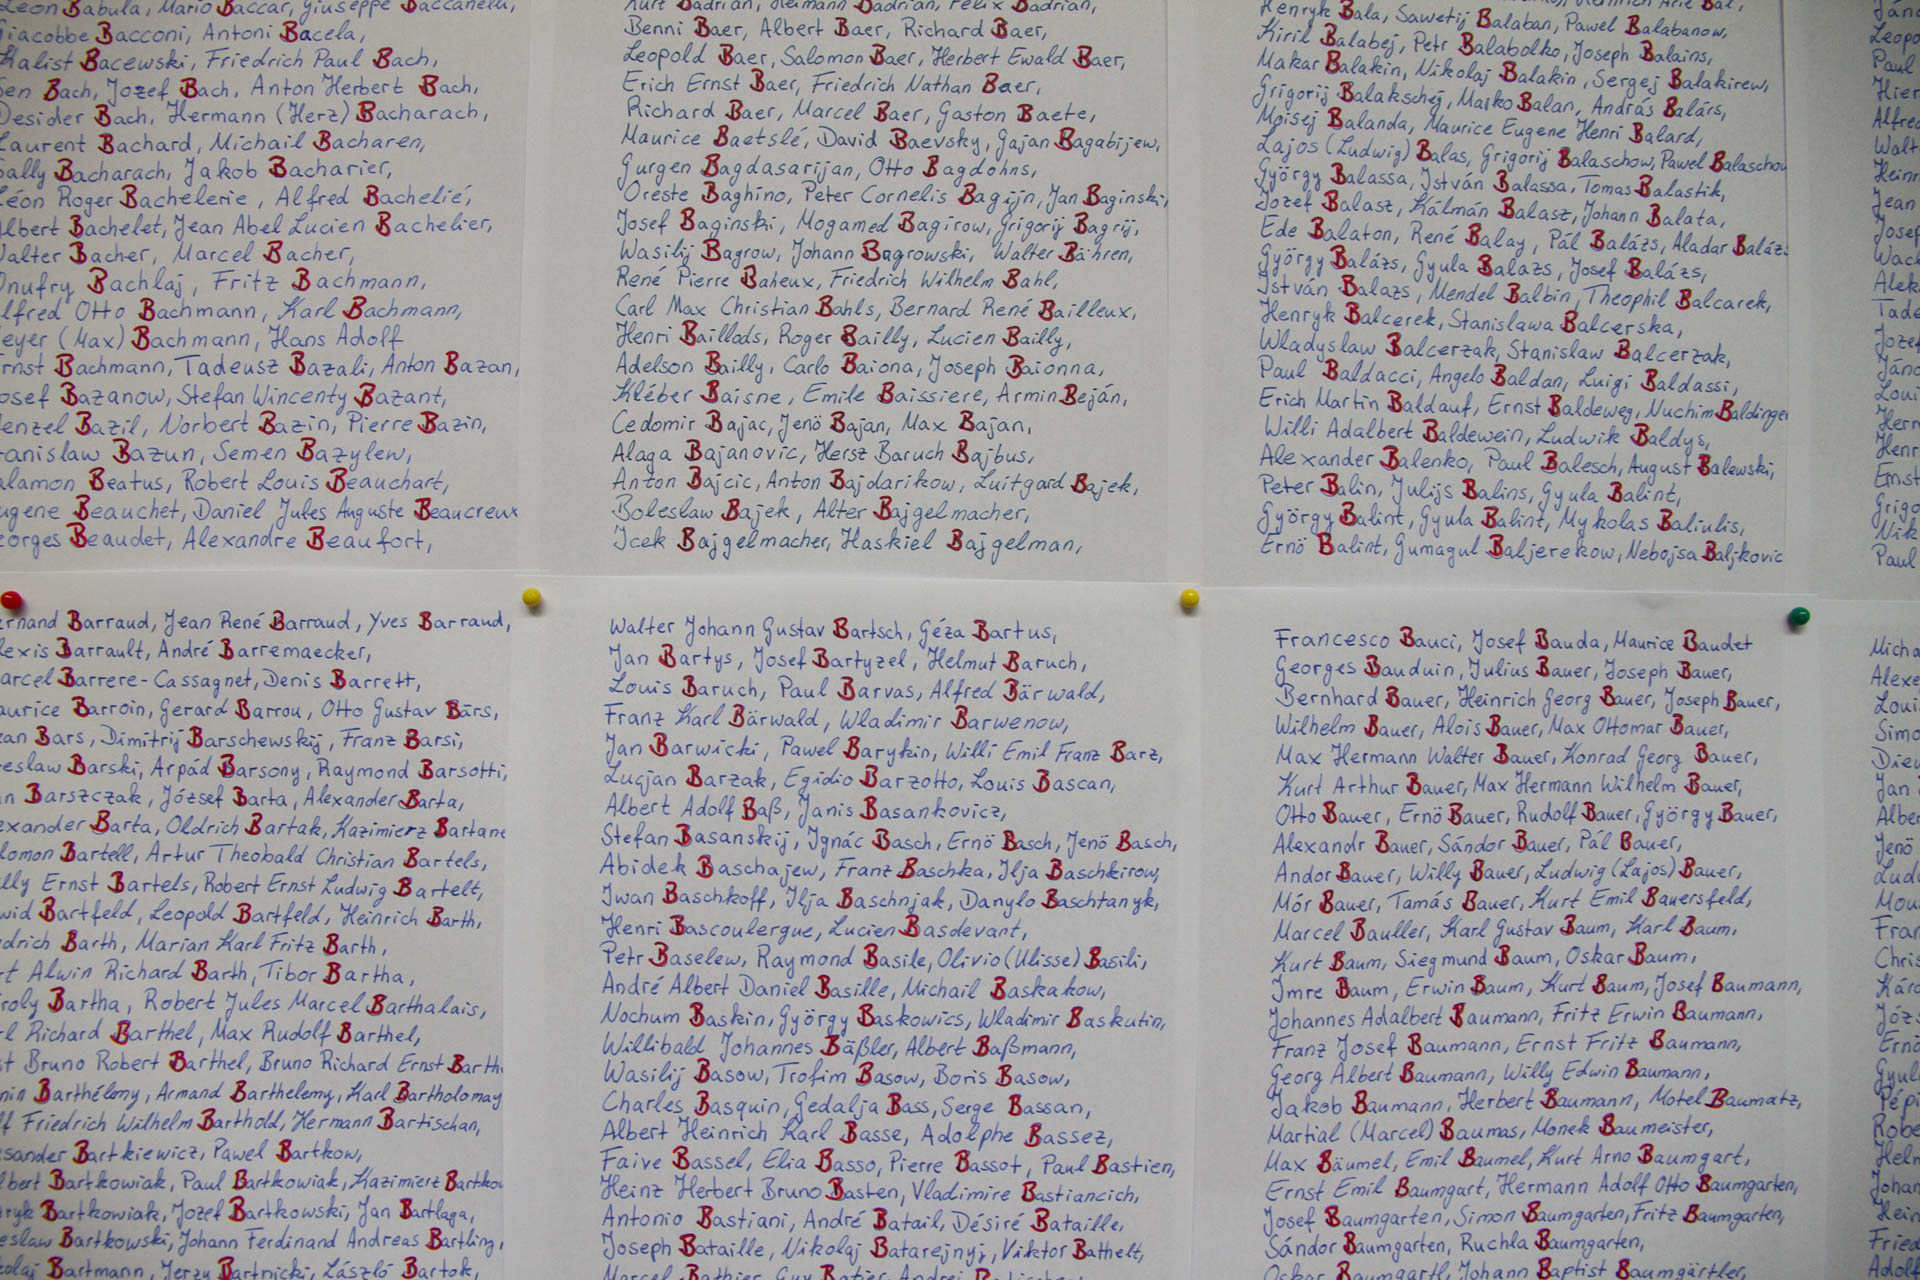 Léon Babula, Mario Baccar, Giuseppe Baccanelli,
Giacobbe Bacconi, Antoni Bacela,
Kalist Bacewski, Friedrich Paul Bach,
Bach, Jozef Bach, Anton Herbert Bach,
Desider Bach, Hermann (Herz) Bacharach,
Laurent Bachard, Michail Bacharen,
Sally Bacharach, Jakob Bacharier,
Léon Roger Bachelerie, Alfred Bachelié,
Albert Bachelet, Jean Abel Lucien Bachelier,
Walter Bacher, Marcel Bacher,
Onufry Bachlaj, Fritz Bachmann,
Alfred Otto Bachmann, Karl Bachmann,
Meyer (Max) Bachmann, Hans Adolf
Ernst Bachmann, Tadeusz Bazali, Anton Bazan,
Josef Bazanow, Stefan Wincenty Bazant,
Wenzel Bazil, Norbert Bazin, Pierre Bazin,
Stanislaw Bazun, Semen Bazylew,
Salamon Beatus, Robert Louis Beauchart,
Eugene Beauchet, Daniel Jules Auguste Beaucreux
Georges Beaudet, Alexandre Beaufort,
Kurt Badrian, Heimann Badrian, Felix Badrian,
Benni Baer, Albert Baer, Richard Baer,
Leopold Baer, Salomon Baer, Herbert Ewald Baer,
Erich Ernst Baer, Friedrich Nathan Baer,
Richard Baer, Marcel Baer, Gaston Baete,
Maurice Baetslé, David Baevsky, Gajan Bagabijew,
Gurgen Bagdasarijan, Otto Bagdohns,
Oreste Baghino, Peter Cornelis Bagijn, Jan Baginski,
Josef Baginski, Mogamed Bagirow, Grigorij Bagrij,
Wasilij Bagrow, Johann Bagrowski, Walter Bähren,
René Pierre Baheux, Friedrich Wilhelm Bahl,
Carl Max Christian Bahls, Bernard René Bailleux,
Henri Baillods, Roger Bailly, Lucien Bailly,
Adelson Bailly, Carlo Baiona, Joseph Baionna,
Kléber Baisne, Emile Baissiere, Armin Beján,
Cedomir Bajac, Jenö Bajan, Max Bajan,
Alaga Bajanovic, Hersz Baruch Bajbus,
Anton Bajcic, Anton Bajdarikow, Luitgard Bajek,
Boleslaw Bajek, Alter Bajgelmacher,
Icek Bajgelmacher, Haskiel Bajgelman,
Henryk Bala, Sawetij Balaban, Pawel Balabanow,
Kiril Balabej, Petr Balabolko, Joseph Balains,
Makar Balakin, Nikolaj Balakin, Sergej Balakirew,
Grigorij Balakschej, Maiko Balan, András Balárs,
Moisej Balanda, Maurice Eugene Henri Balard,
Lajos (Ludwig) Balas, Grigorij Balaschow, Pawel Balaschow
György Balassa, István Balassa, Tomas Balastik,
Jozef Balasz, Kálmán Balasz, Johann Balata,
Ede Balaton, René Balay, Pál Balázs, Aladar Balázs
György Balázs, Gyula Balazs, Josef Balázs,
István Balazs, Mendel Balbin, Theophil Balcarek,
Henryk Balcerek, Stanislawa Balcerska,
Wladyslaw Balcerzak, Stanislaw Balcerzak,
Paul Baldacci, Angelo Baldan, Luigi Baldassi,
Erich Martin Baldauf, Ernst Baldeweg, Nuchim Baldinger
Willi Adalbert Baldewein, Ludwik Baldys,
Alexander Balenko, Paul Balesch, August Balewski,
Peter Balin, Julijs Balins, Gyula Balint,
György Balint, Gyula Balint, Mykolas Baliulis,
Ernö Balint, Gumagul Baljerekow, Nebojsa Baljkovic
Paul
Alfred
Jean
Josef
Jozef
Ernst
Paul
Barraud, Jean René Barraud, Yves Barraud,
Alexis Barrault, André Barremaecker,
Marcel Barrere-Cassagnet, Denis Barrett,
Maurice Barroin, Gerard Barrou, Otto Gustav Bärs,
Bars, Dimitrij Barschewskij, Franz Barsi,
Barski, Arpád Barsony, Raymond Barsotti,
Barszczak, József Barta, Alexander Barta,
Alexander Barta, Oldrich Bartak, Kazimierz Bartane
Salomon Bartell, Artur Theobald Christian Bartels,
Willy Ernst Bartels, Robert Ernst Ludwig Bartelt,
Bartfeld, Leopold Bartfeld, Heinrich Barth,
Barth, Marian Karl Fritz Barth,
Alwin Richard Barth, Tibor Bartha,
Károly Bartha, Robert Jules Marcel Barthalais,
Richard Barthel, Max Rudolf Barthel,
Bruno Robert Barthel, Bruno Richard Ernst Barth
Barthélémy, Armand Barthelemy, Karl Bartholomay
Friedrich Wilhelm Barthold, Hermann Bartischan,
Bartkiewicz, Pawel Bartkow,
Albert Bartkowiak, Paul Bartkowiak, Kazimierz Bartkow
Henryk Bartkowiak, Jozef Bartkowski, Jan Bartlaga,
Bartkowski, Johann Ferdinand Andreas Bartling,
Bartmann, Jerzy Bartnicki, László Bartok,
Walter Johann Gustav Bartsch, Géza Bartus,
Jan Bartys, Josef Bartyzel, Helmut Baruch,
Louis Baruch, Paul Barvas, Alfred Bärwald,
Franz Karl Bärwald, Wladimir Barwenow,
Jan Barwicki, Pawel Barykin, Willi Emil Franz Barz,
Lucjan Barzak, Egidio Barzotto, Louis Bascan,
Albert Adolf Baß, Janis Basankovicz,
Stefan Basanskij, Ignác Basch, Ernö Basch, Jenö Basch,
Abidek Baschajew, Franz Baschka, Ilja Baschkirow,
Iwan Baschkoff, Ilja Baschnjak, Danylo Baschtanyk,
Henri Bascoulergue, Lucien Basdevant,
Petr Baselew, Raymond Basile, Olivio (Ulisse) Basili,
André Albert Daniel Basille, Michail Baskakow,
Nochum Baskin, György Baskowics, Wladimir Baskutin,
Willibald Johannes Bäßler, Albert Baßmann,
Wasilij Basow, Trofim Basow, Boris Basow,
Charles Basquin, Gedalja Bass, Serge Bassan,
Albert Heinrich Karl Basse, Adolphe Bassez,
Faive Bassel, Elia Basso, Pierre Bassot, Paul Bastien,
Heinz Herbert Bruno Basten, Vladimire Bastiancich,
Antonio Bastiani, André Batail, Désiré Bataille,
Joseph Bataille, Nikolaj Batarejnyj, Viktor Bathelt,
Marcel Bathier, Guy Batier, Andrei
Francesco Bauci, Josef Bauda, Maurice Baudet
Georges Bauduin, Julius Bauer, Joseph Bauer,
Bernhard Bauer, Heinrich Georg Bauer, Joseph Bauer,
Wilhelm Bauer, Alois Bauer, Max Ottomar Bauer,
Max Hermann Walter Bauer, Konrad Georg Bauer,
Kurt Arthur Bauer, Max Hermann Wilhelm Bauer,
Otto Bauer, Ernö Bauer, Rudolf Bauer, György Bauer,
Alexandr Bauer, Sándor Bauer, Pál Bauer,
Andor Bauer, Willy Bauer, Ludwig (Lajos) Bauer,
Mór Bauer, Tamás Bauer, Kurt Emil Bauersfeld,
Marcel Bauller, Karl Gustav Baum, Karl Baum,
Kurt Baum, Siegmund Baum, Oskar Baum,
Imre Baum, Erwin Baum, Kurt Baum, Josef Baumann,
Johannes Adalbert Baumann, Fritz Erwin Baumann,
Franz Josef Baumann, Ernst Fritz Baumann,
Georg Albert Baumann, Willy Edwin Baumann,
Jakob Baumann, Herbert Baumann, Motel Baumatz,
Martial (Marcel) Baumas, Monek Baumeister,
Max Bäumel, Emil Baumel, Kurt Arno Baumgart,
Ernst Emil Baumgart, Hermann Adolf Otto Baumgarten,
Josef Baumgarten, Simon Baumgarten, Fritz Baumgarten,
Sándor Baumgarten, Ruchla Baumgarten,
Oskar Baumgartl, Johann Baptist Baumgärtler,
Jan
Jenö